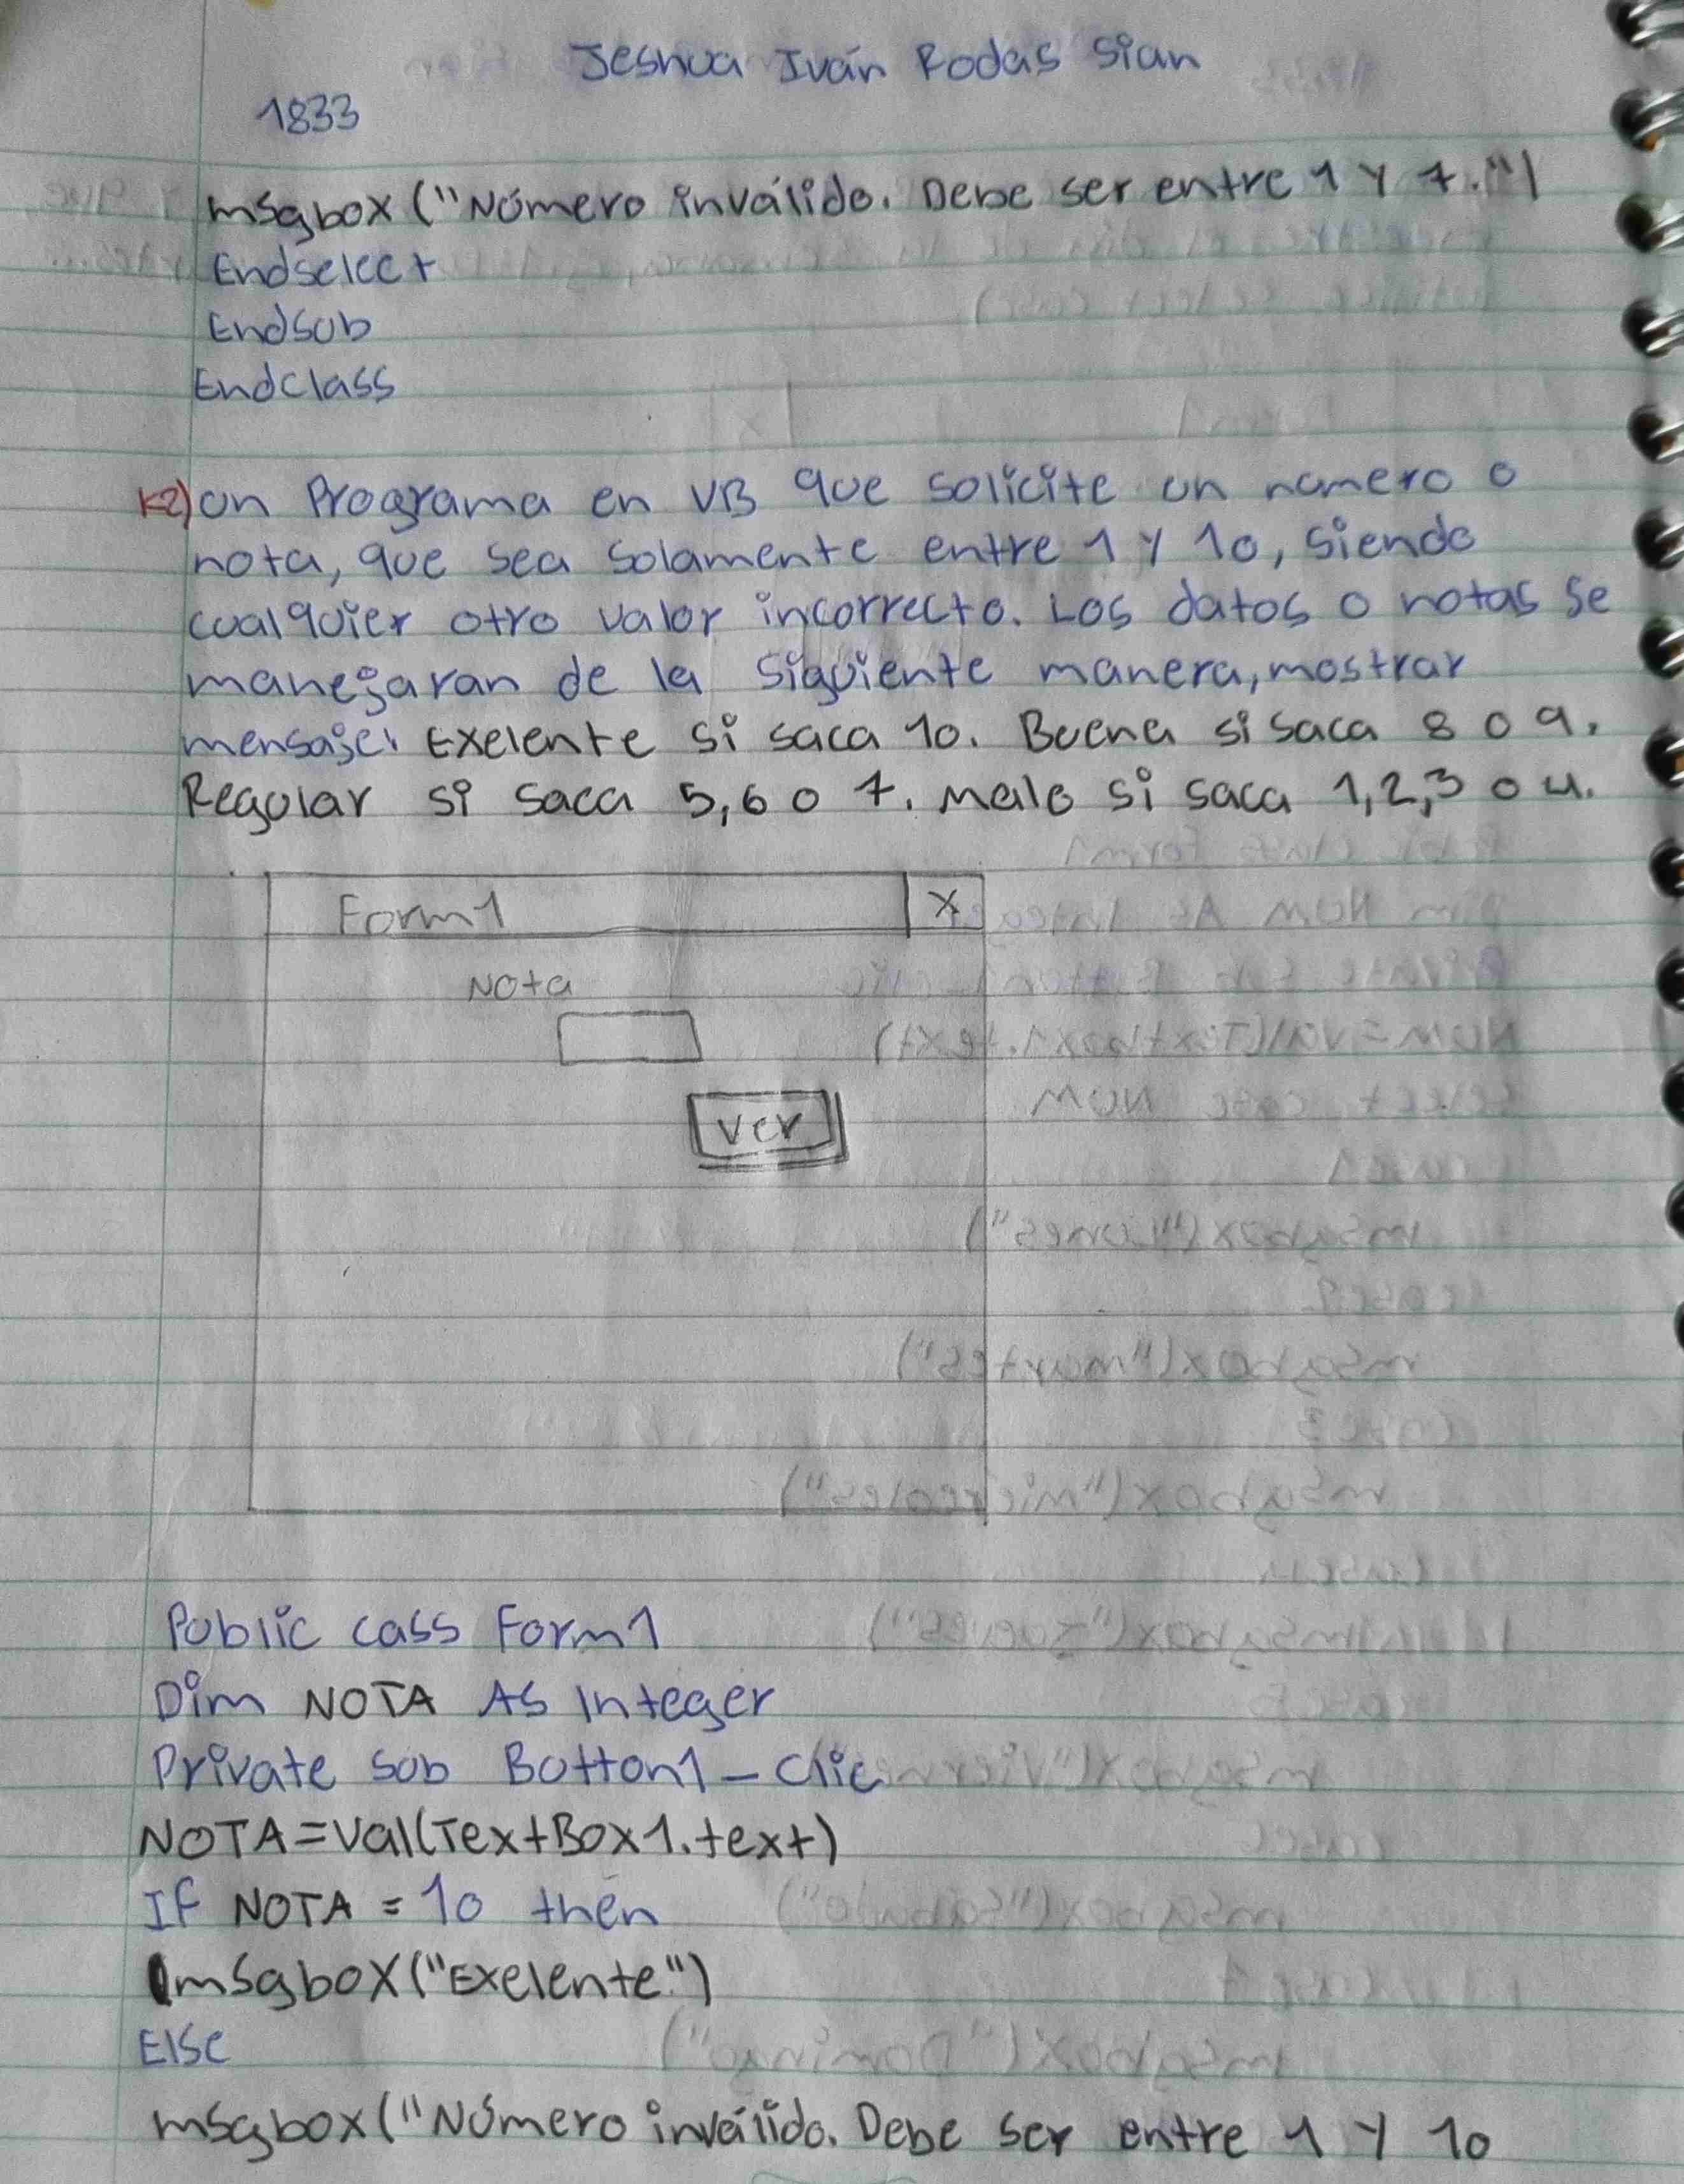 Jeshua Iván Rodas Sian
1833
msgbox ("Número inválido. Debe ser entre 1 y 7.")
Endselect
Endsub
Endclass
K2) un Programa en VB que solicite un numero o
nota, que sea solamente entre 1 y 10, siendo
cualquier otro valor incorrecto. Los datos o notas se
manejaran de la siguiente manera, mostrar
mensaje: Exelente si saca 10. Buena si saca 8 o 9.
Regular si saca 5,6 o 7. Malo si saca 1,2,3 o 4.
Form1 X
Nota
Ver
Public cass Form1
Dim NOTA As Integer
Private sub Button1_Clic
NOTA=Val(TextBox1.text)
If NOTA = 10 then
msgbox("Exelente")
Else
msgbox("Número inválido. Debe ser entre 1 y 10